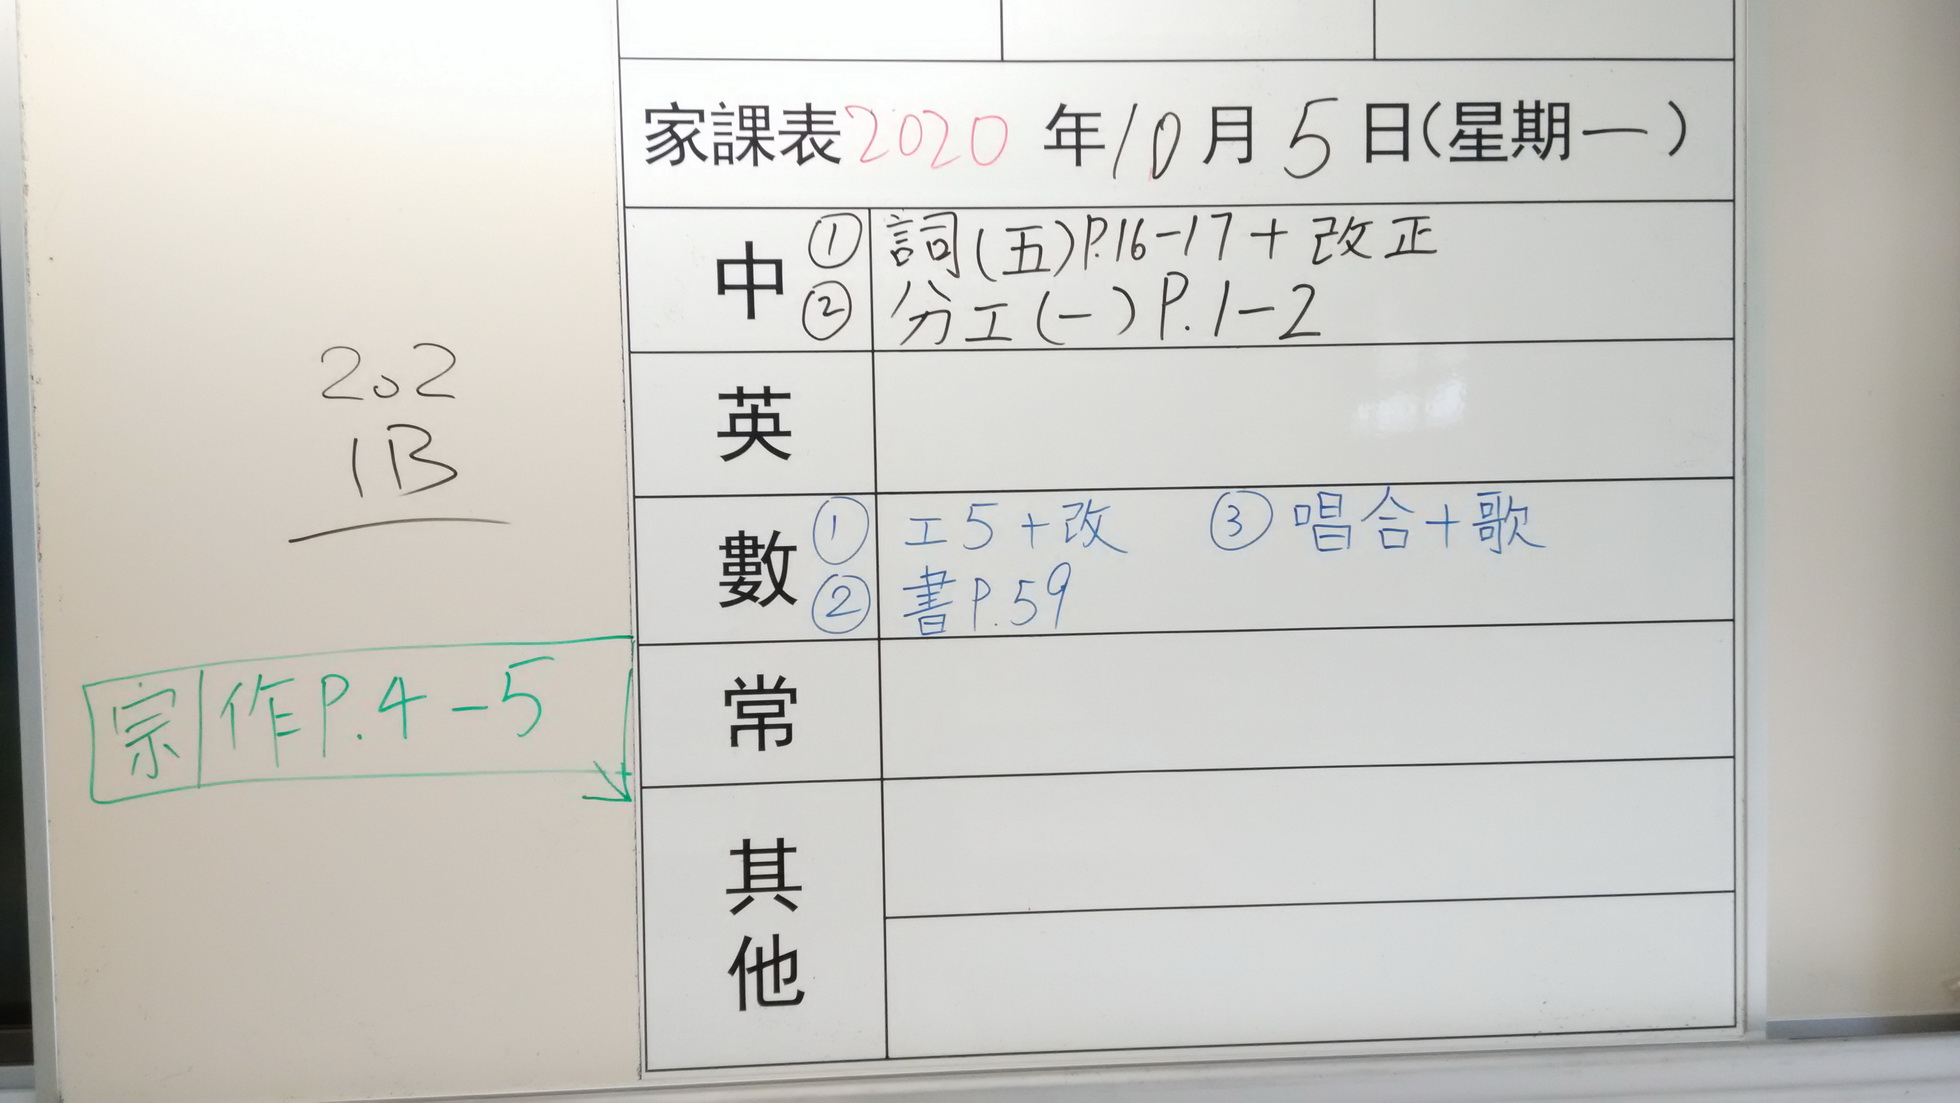 家課表2020年10月5日(星期一)
中 ① 詞(五)P.16-17+改正
② 分工(一)P.1-2
英
數 ① 工5+改 ③ 唱合+歌
② 書P.59
常
其他
202
1B
宗 作P.4-5